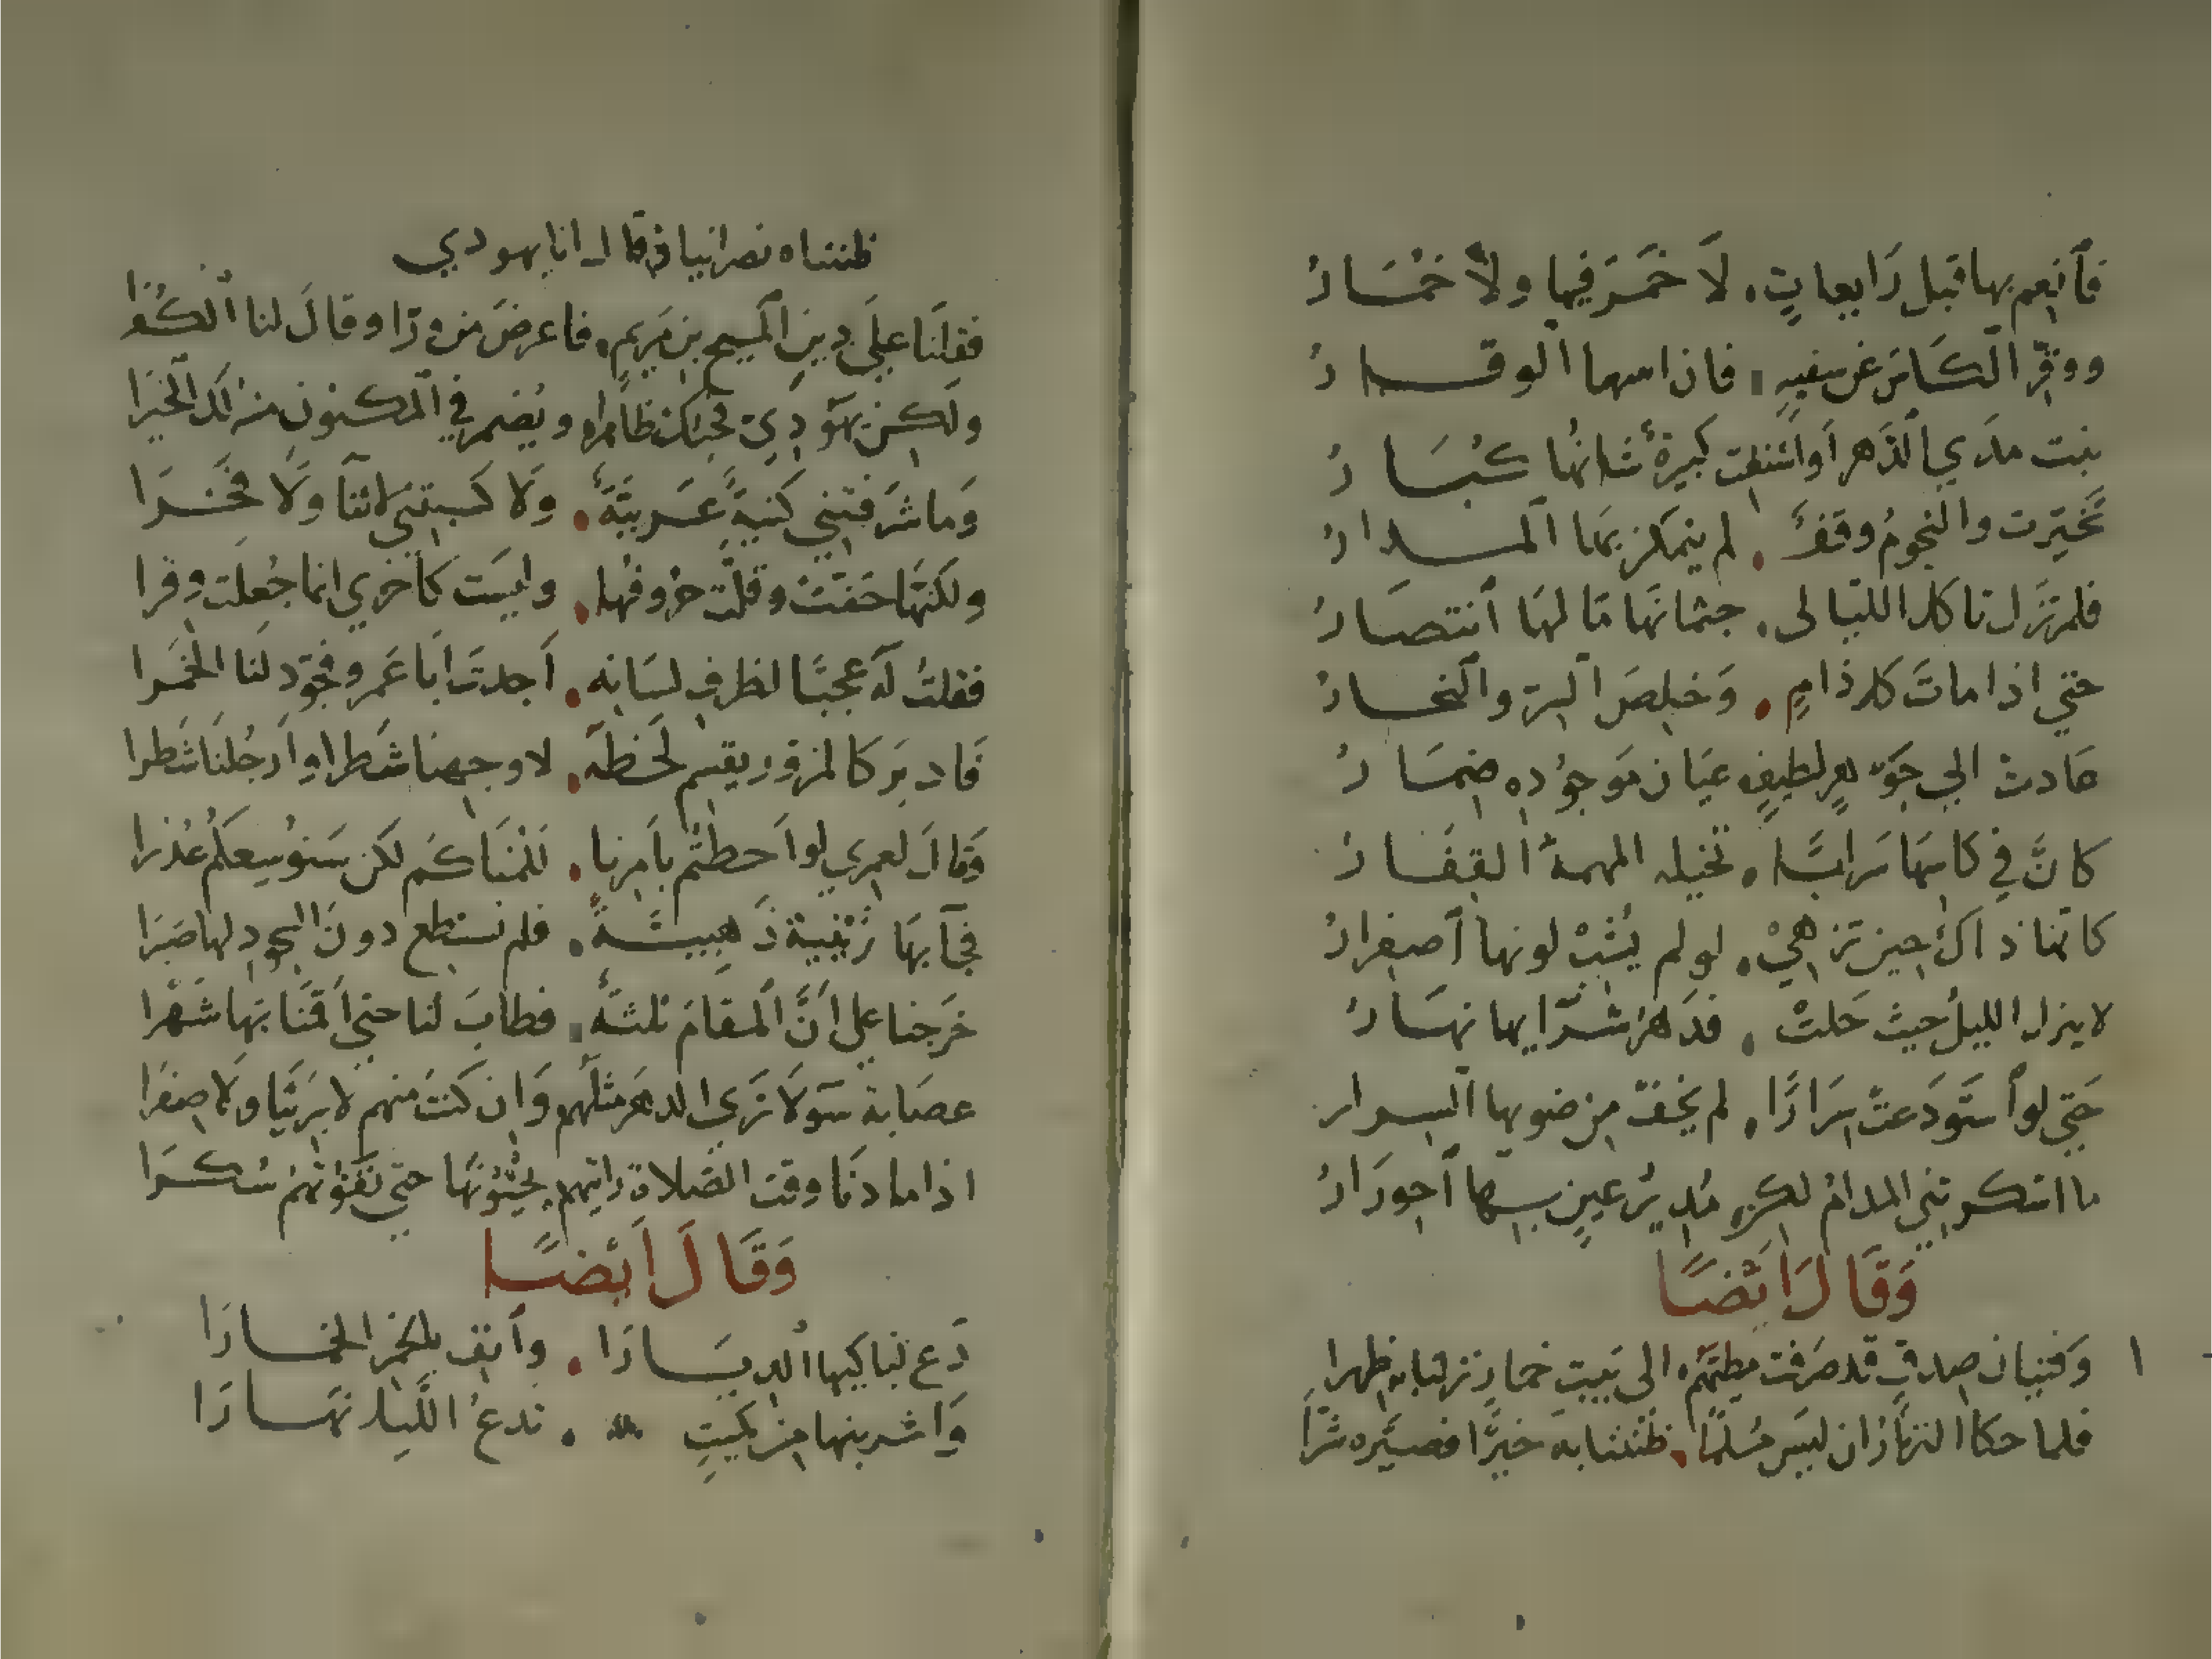 فأنعم بها قبل رَابعاتٍ . لَا خَمَرَ فيها ولَا خَمَّارُ
ووقّر الكَاسَ عن سفيهٍ . فان اسها الوقارُ
بنت مدَي الدَّهر أو اسنّت كبيرةٌ شانهُا كُبَارُ
تخُيّرت والنجومُ وقفٌ . لم يتمكن بها المدارُ
فلم تزَل تاكل الليالى . جثمانَها مَا لهَا اَنتصَارُ
حتي اذا ماتَ كل ذامٍ . وَخلصَ السرّ والنجارُ
عادت الي جَوّهرٍ لطيفٍ عيَان مَوجوُده ضِمَارُ
كانَّ في كاسِهَا سَرابًا . تخيله المهمةُ القفَارُ
كانما ذاك حين تزهي . لو لم يُشَبْ لونها اَصفرارُ
لا ينزل الليلُ حيث حَلتْ . فدَهرُ شرّابها نهَارُ
حَتي لو اَستَودَعتْ سِرَارًا . لم يخفَ من ضوِيها السرار
ما اسكرتني المدامُ لكن مُديرُ عينٍ بها اَحورَارُ
وَقَالَ اَيْضًا
وَفتيان صدقٍ قد صَرفت مطيَّهُم الى بَيتِ خمارٍ نزلنا به ظهرا
فلما حكا الزنارُ ان ليسَ مُسلمًا . ظنَنّا به خيرًا فصيَّره شرَّا
ظنناه نصرانيا فقال انا يهودي
فقلنَا علَي دين المسيحِ بن مَريمٍ . فاعرضَ مزورّا وقالَ لنا الكُفرا
ولكن يهَودِيّ يحبُك ظاهرًا ويُضمر في المكنونِ منه لك الخترا
وَما شرَفتني كنيةٌ عَرَبيَّةٌ . وَلا كَسبتني لا ثنآ وَلَا فَخرَا
ولكنّها خَفّتْ وقلّت حرُوفهُا . وليسَت كاخري انما جُعِلت وقرا
فقلتُ لهَ عجبًا لظرفِ لسَانه . اَجدتَ اَبَا عَمروٍ فجَوّد لنَا الخمَرا
فَادبرَ كالمزورِ يقسِم لحَظهَ . لاوجهنا شَطرا واَرجُلنَا شَطرا
وَقالَ لعمري لو اَحطتُم باَمرنا . لمنَاكمُ لكن سَنوُسِعكم عُذرا
فجآ بهَا زَيْتِيةً ذَهبيةً . فلم نستطع دونَ السجودِ لها صَبَرا
خرَجنا علي اَنَّ المقامَ ثلثةٌ . فطابَ لنا حتي اَقمَنا بهَا شَهرًا
عصَابة سَو لَا تَرَي الدهرَ مثلَهُم وَان كنتُ منهم لا بَريًا ولَا صِفرَا
اذا ما دنَا وقت الصَّلاة رَاتيهم يحثُوّنهَا حتي تفوُتهمُ سُكرَا
وَقَالَ اَيْضًا
دَع لبَاكيها الديَارَا . واَنف بالخمَر الخمارَا
وَاشربنها من كميتٍ . تدعُ اللّيل نهَارَا